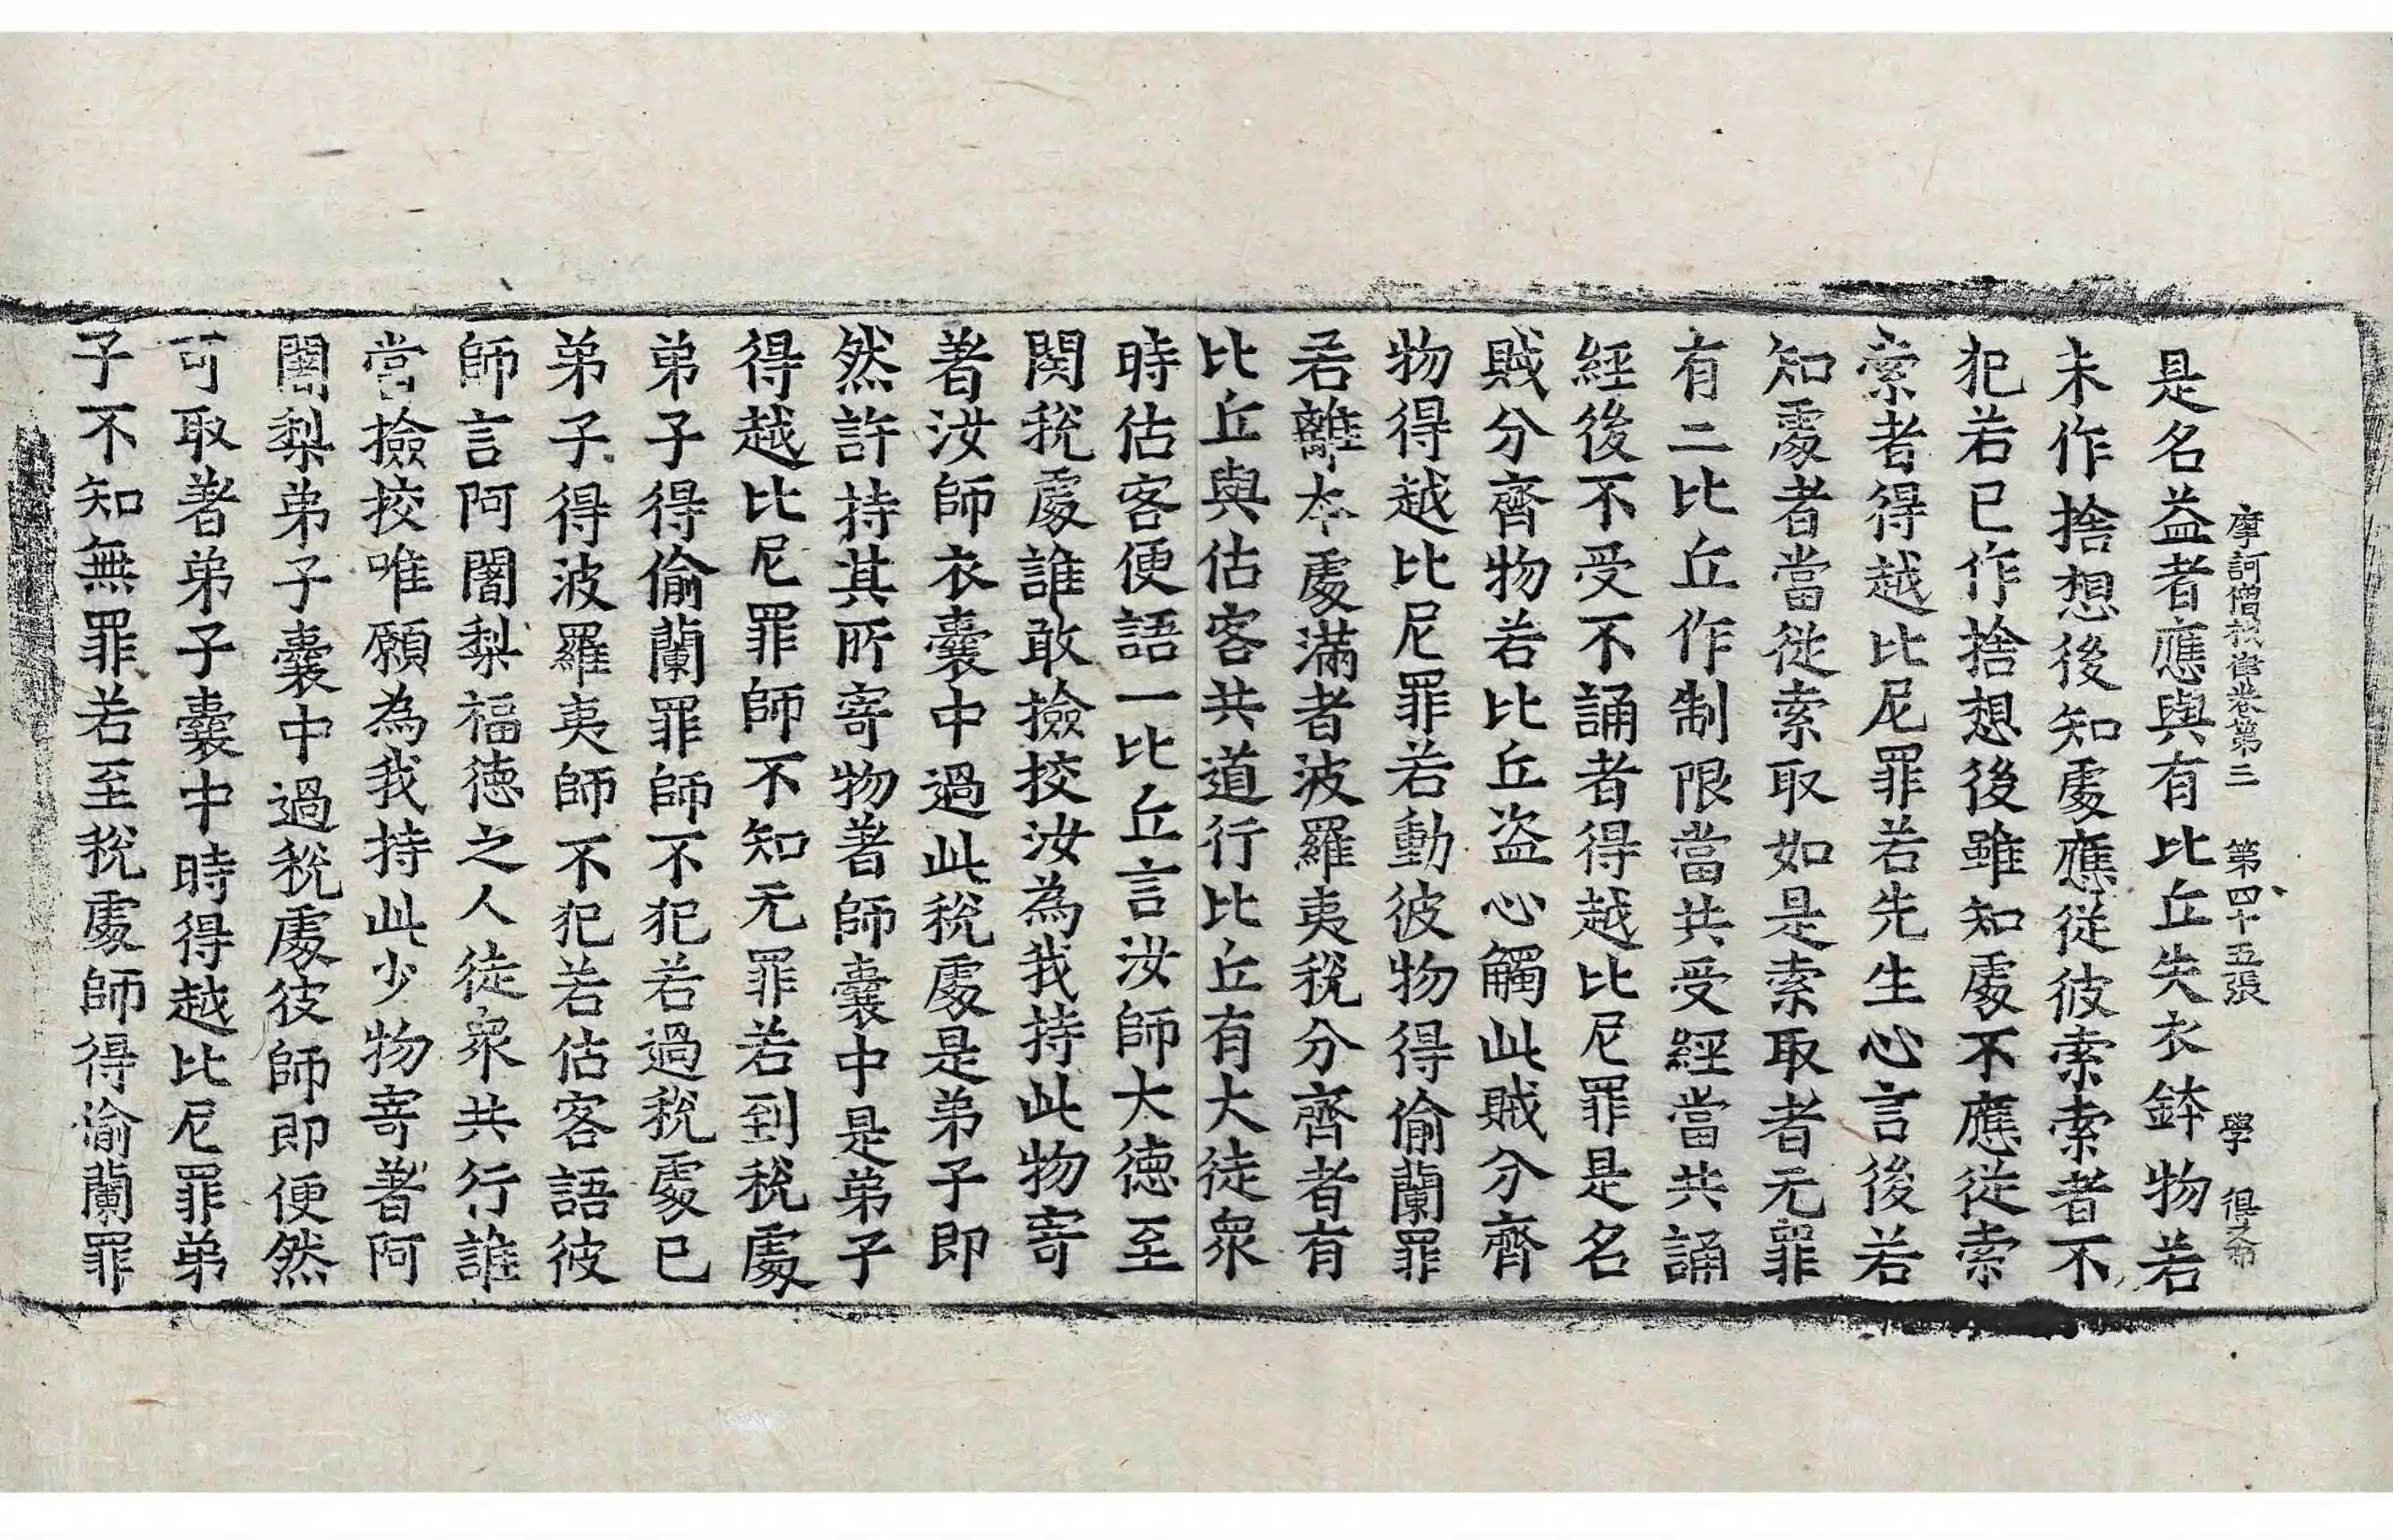 摩訶僧祇律卷第三 第四十五張 學 得
是名益者應與有比丘失衣鉢物若
未作捨想後知處應從彼索索者不
犯若已作捨想後雖知處不應從索
索者得越比尼罪若先生心言後若
知處者當從索取如是索取者无罪
有二比丘作制限當共受經當共誦
經後不受不誦者得越比尼罪是名
賊分齊物若比丘盜心觸此賊分齊
物得越比尼罪若動彼物得偷蘭罪
若離本處滿者波羅夷稅分齊者有
比丘與估客共道行比丘有大徒眾
時估客便語一比丘言汝師大德至
関稅處誰敢撿挍汝為我持此物寄
著汝師衣囊中過此稅處是弟子即
然許持其所寄物著師囊中是弟子
得越比尼罪師不知无罪若到稅處
弟子得偷蘭罪師不犯若過稅處已
弟子得波羅夷師不犯若估客語彼
師言阿闍梨福德之人徒眾共行誰
當撿挍唯願為我持此少物寄著阿
闍梨弟子囊中過稅處彼師即便然
可取著弟子囊中時得越比尼罪弟
子不知無罪若至稅處師得偷蘭罪